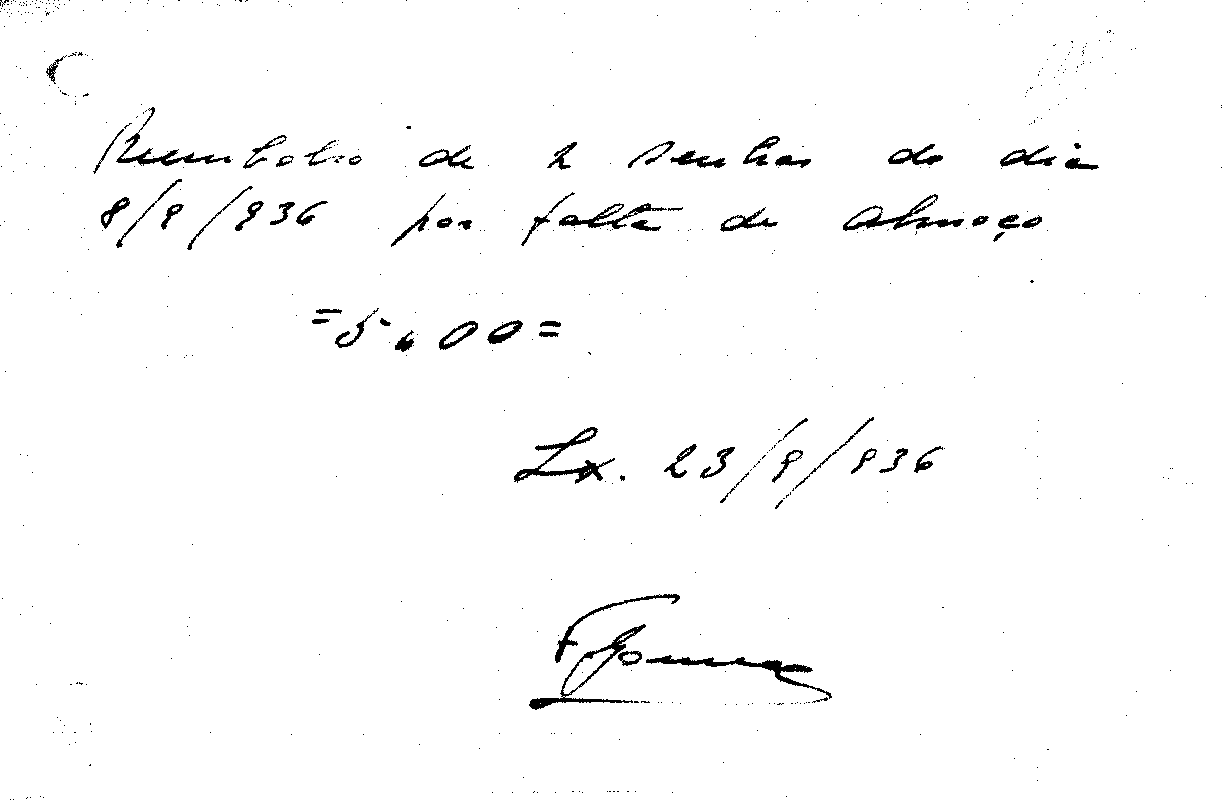 Reembolso de 2 senhas do dia
8/9/936 por falta de almoço
=5.00=
Lx. 23/9/936
F Gomes